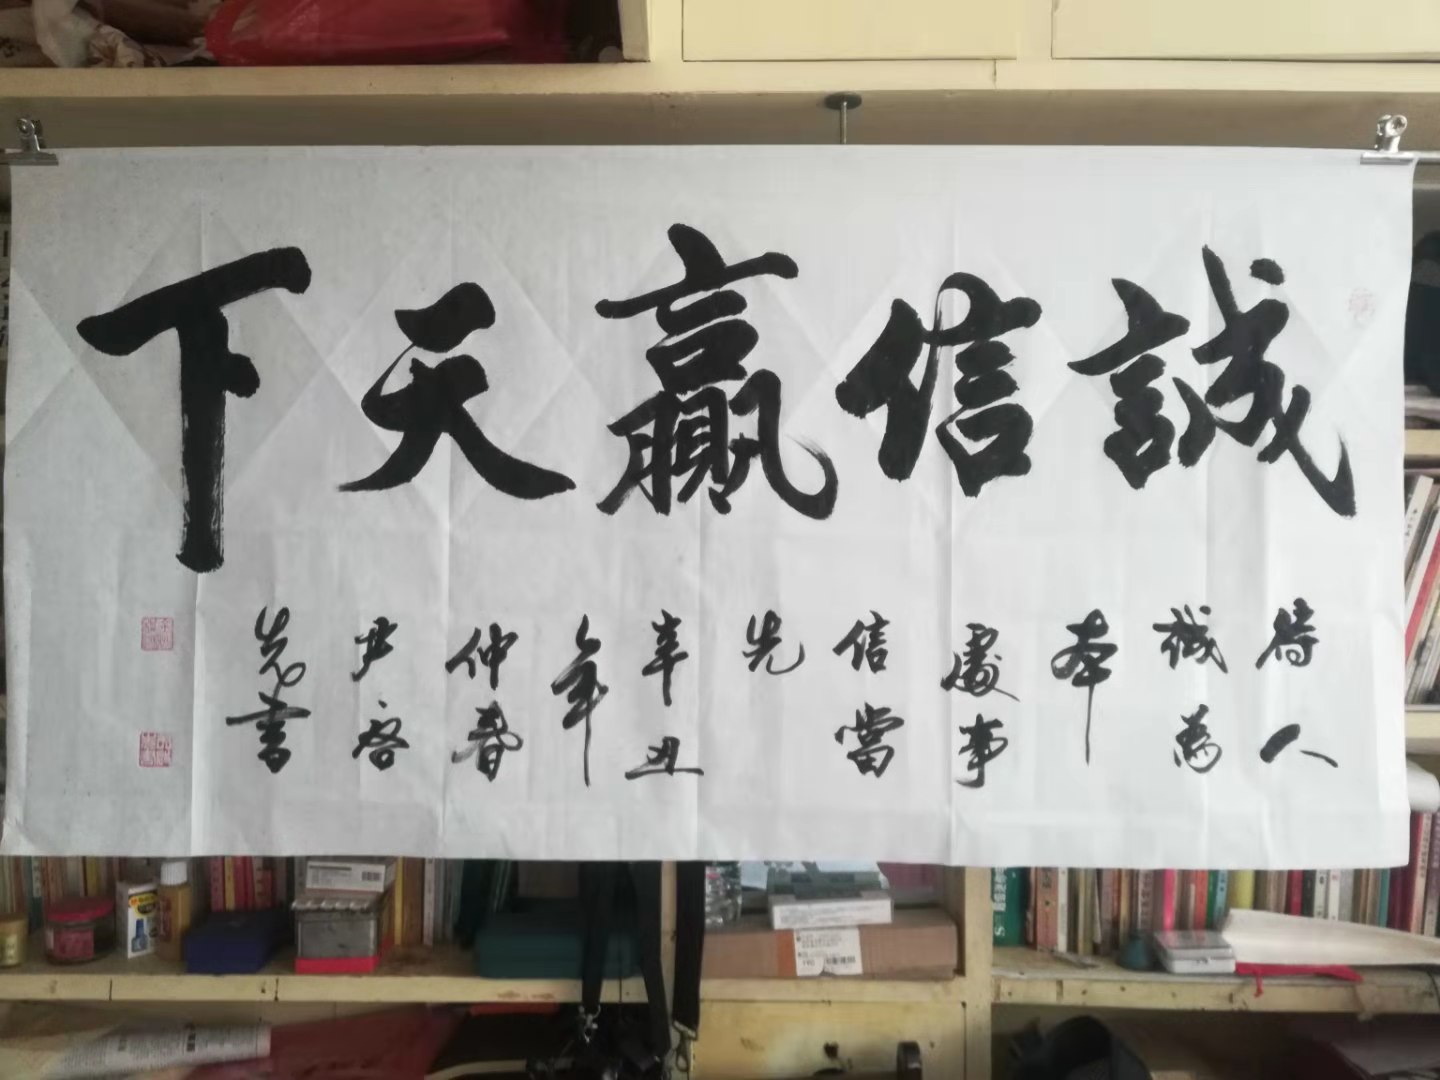 誠信贏天下
待人
誠為
本
處事
信當
先
辛丑
年
仲春
尹啓
先書